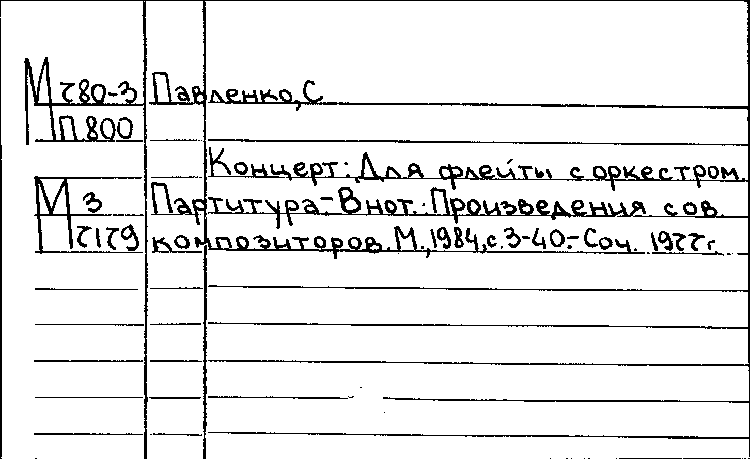 М 780-3 Павленко, С
П 800
Концерт: Для флейты с оркестром.
М 3 Партитура.- В нот.: Произведения сов.
7179 композиторов. М., 1984, с. 3-40.- Соч. 1977 г.